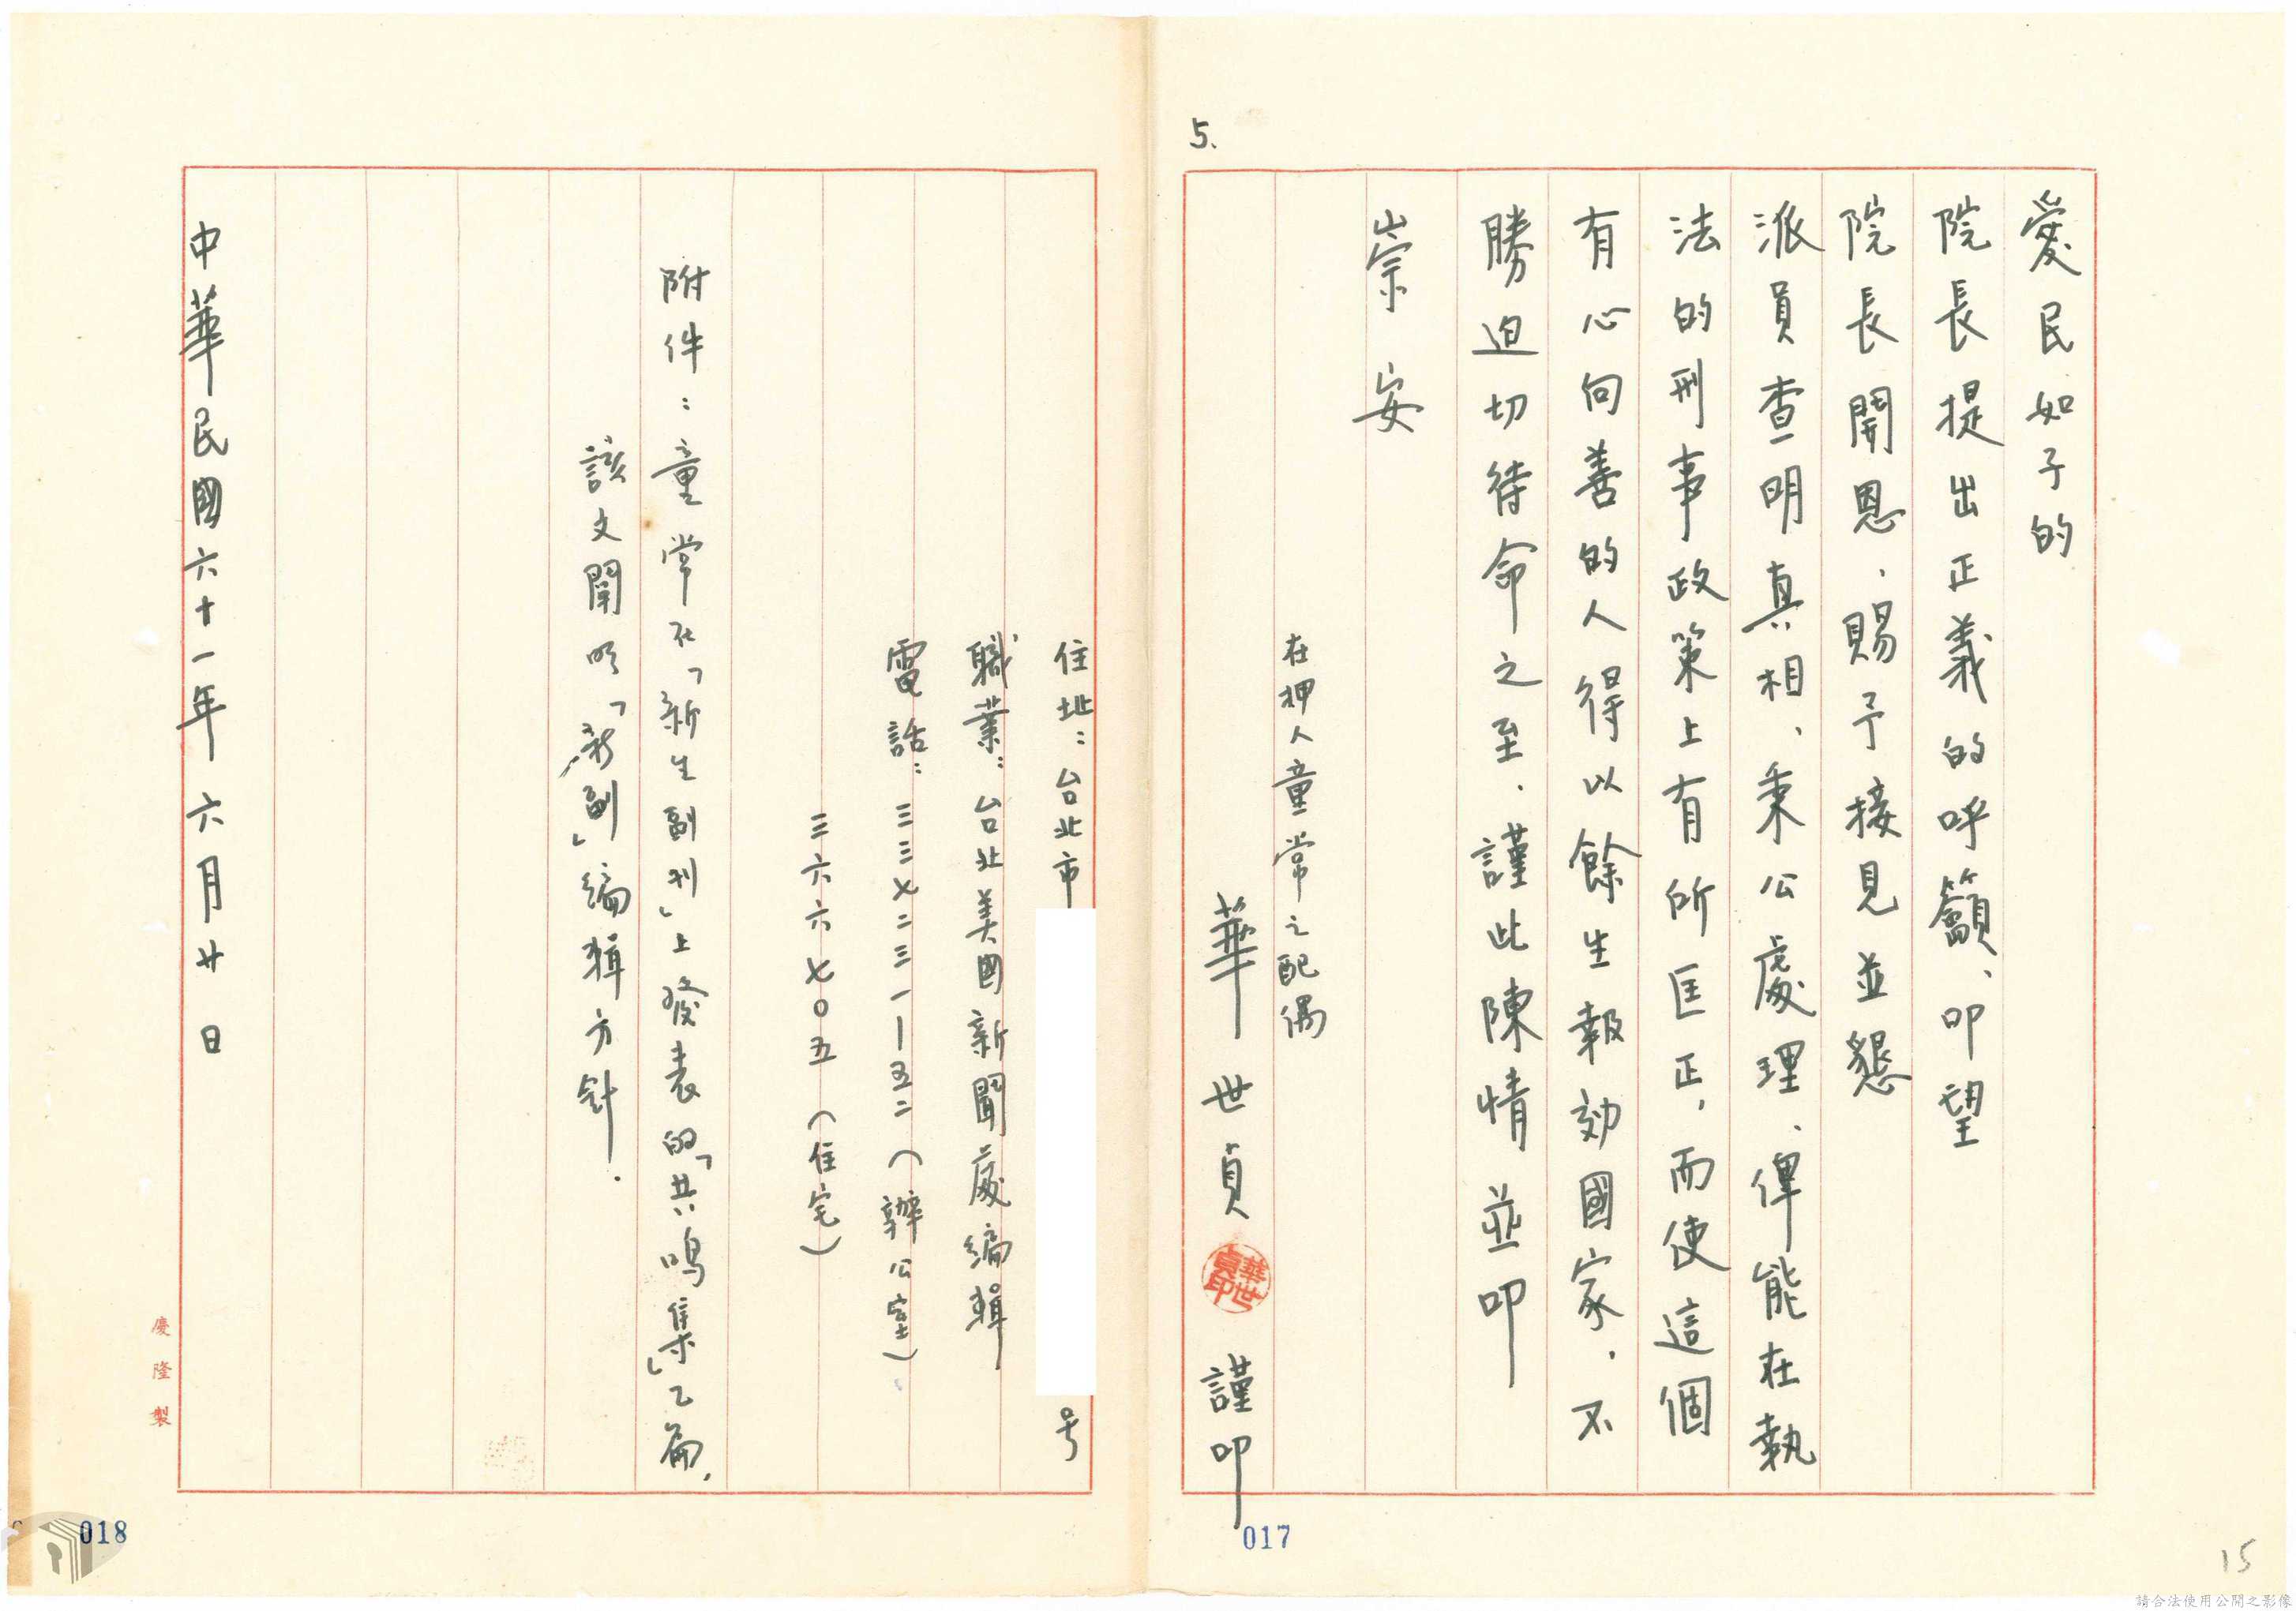 5.
愛民如子的
院長提出正義的呼籲、叩望
院長開恩、賜予接見並懇
派員查明真相、秉公處理、俾能在執
法的刑事政策上有所匡正，而使這個
有心向善的人得以餘生報効國家．不
勝迫切待命之至．謹此陳情並叩
崇安
在押人童常之配偶
華世貞 華世貞印 謹叩
住址：台北市 号
職業：台北美國新聞處編輯
電話：三三七二三一｜五二（辦公室）
三六六七〇五（住宅）
附件：童常在「新生副刊」上發表的「共鳴集」乙篇，
該文闡明「新副」編輯方針．
中華民國六十一年六月廿日
慶隆製
017
018
15
請合法使用公開之影像